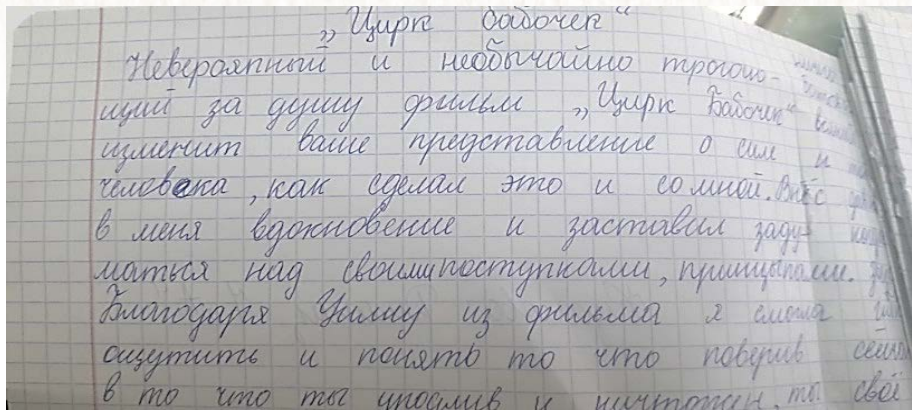 „Цирк бабочек“
Невероятный и необычайно трогаю-
щий за душу фильм „Цирк Бабочек“
изменит ваше представление о силе и
человека, как сделал это и со мной. Внёс
в меня вдохновение и заставил заду-
маться над своими поступками, принцыпами.
Благодаря Уиллу из фильма я смогла
ощутить и понять то что поверив
в то что ты уродлив и ничтожен, ты своё